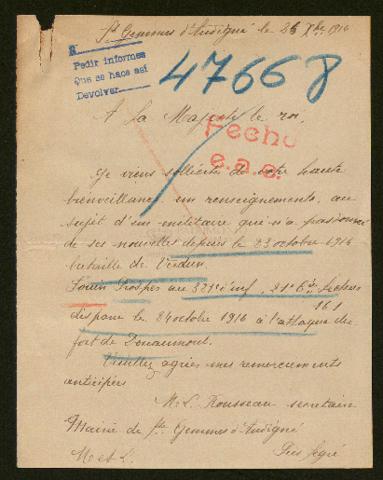 Ste Gemmes d'Andigné le 26 Xbre 1916
R
Pedir informes
Que se hace así
Devolver
47668
A sa Majesté le roi,
Fecho
e.a.e.
Je viens solliciter de votre haute
bienveillance un renseignements au
sujet d'un militaire qui n'a pas donné
de ses nouvelles depuis le 23 octobre 1916
bataille de Verdun.
Prosper au 321e inf, 21e Cie, Secteur
161
disparu le 24 octobre 1916 à l'attaque du
fort de Douaumont.
Veuillez agréer mes remerciements
anticipés
M. L. Rousseau secrétaire
Mairie de Ste Gemmes d'Andigné
M et L.
Près Segré